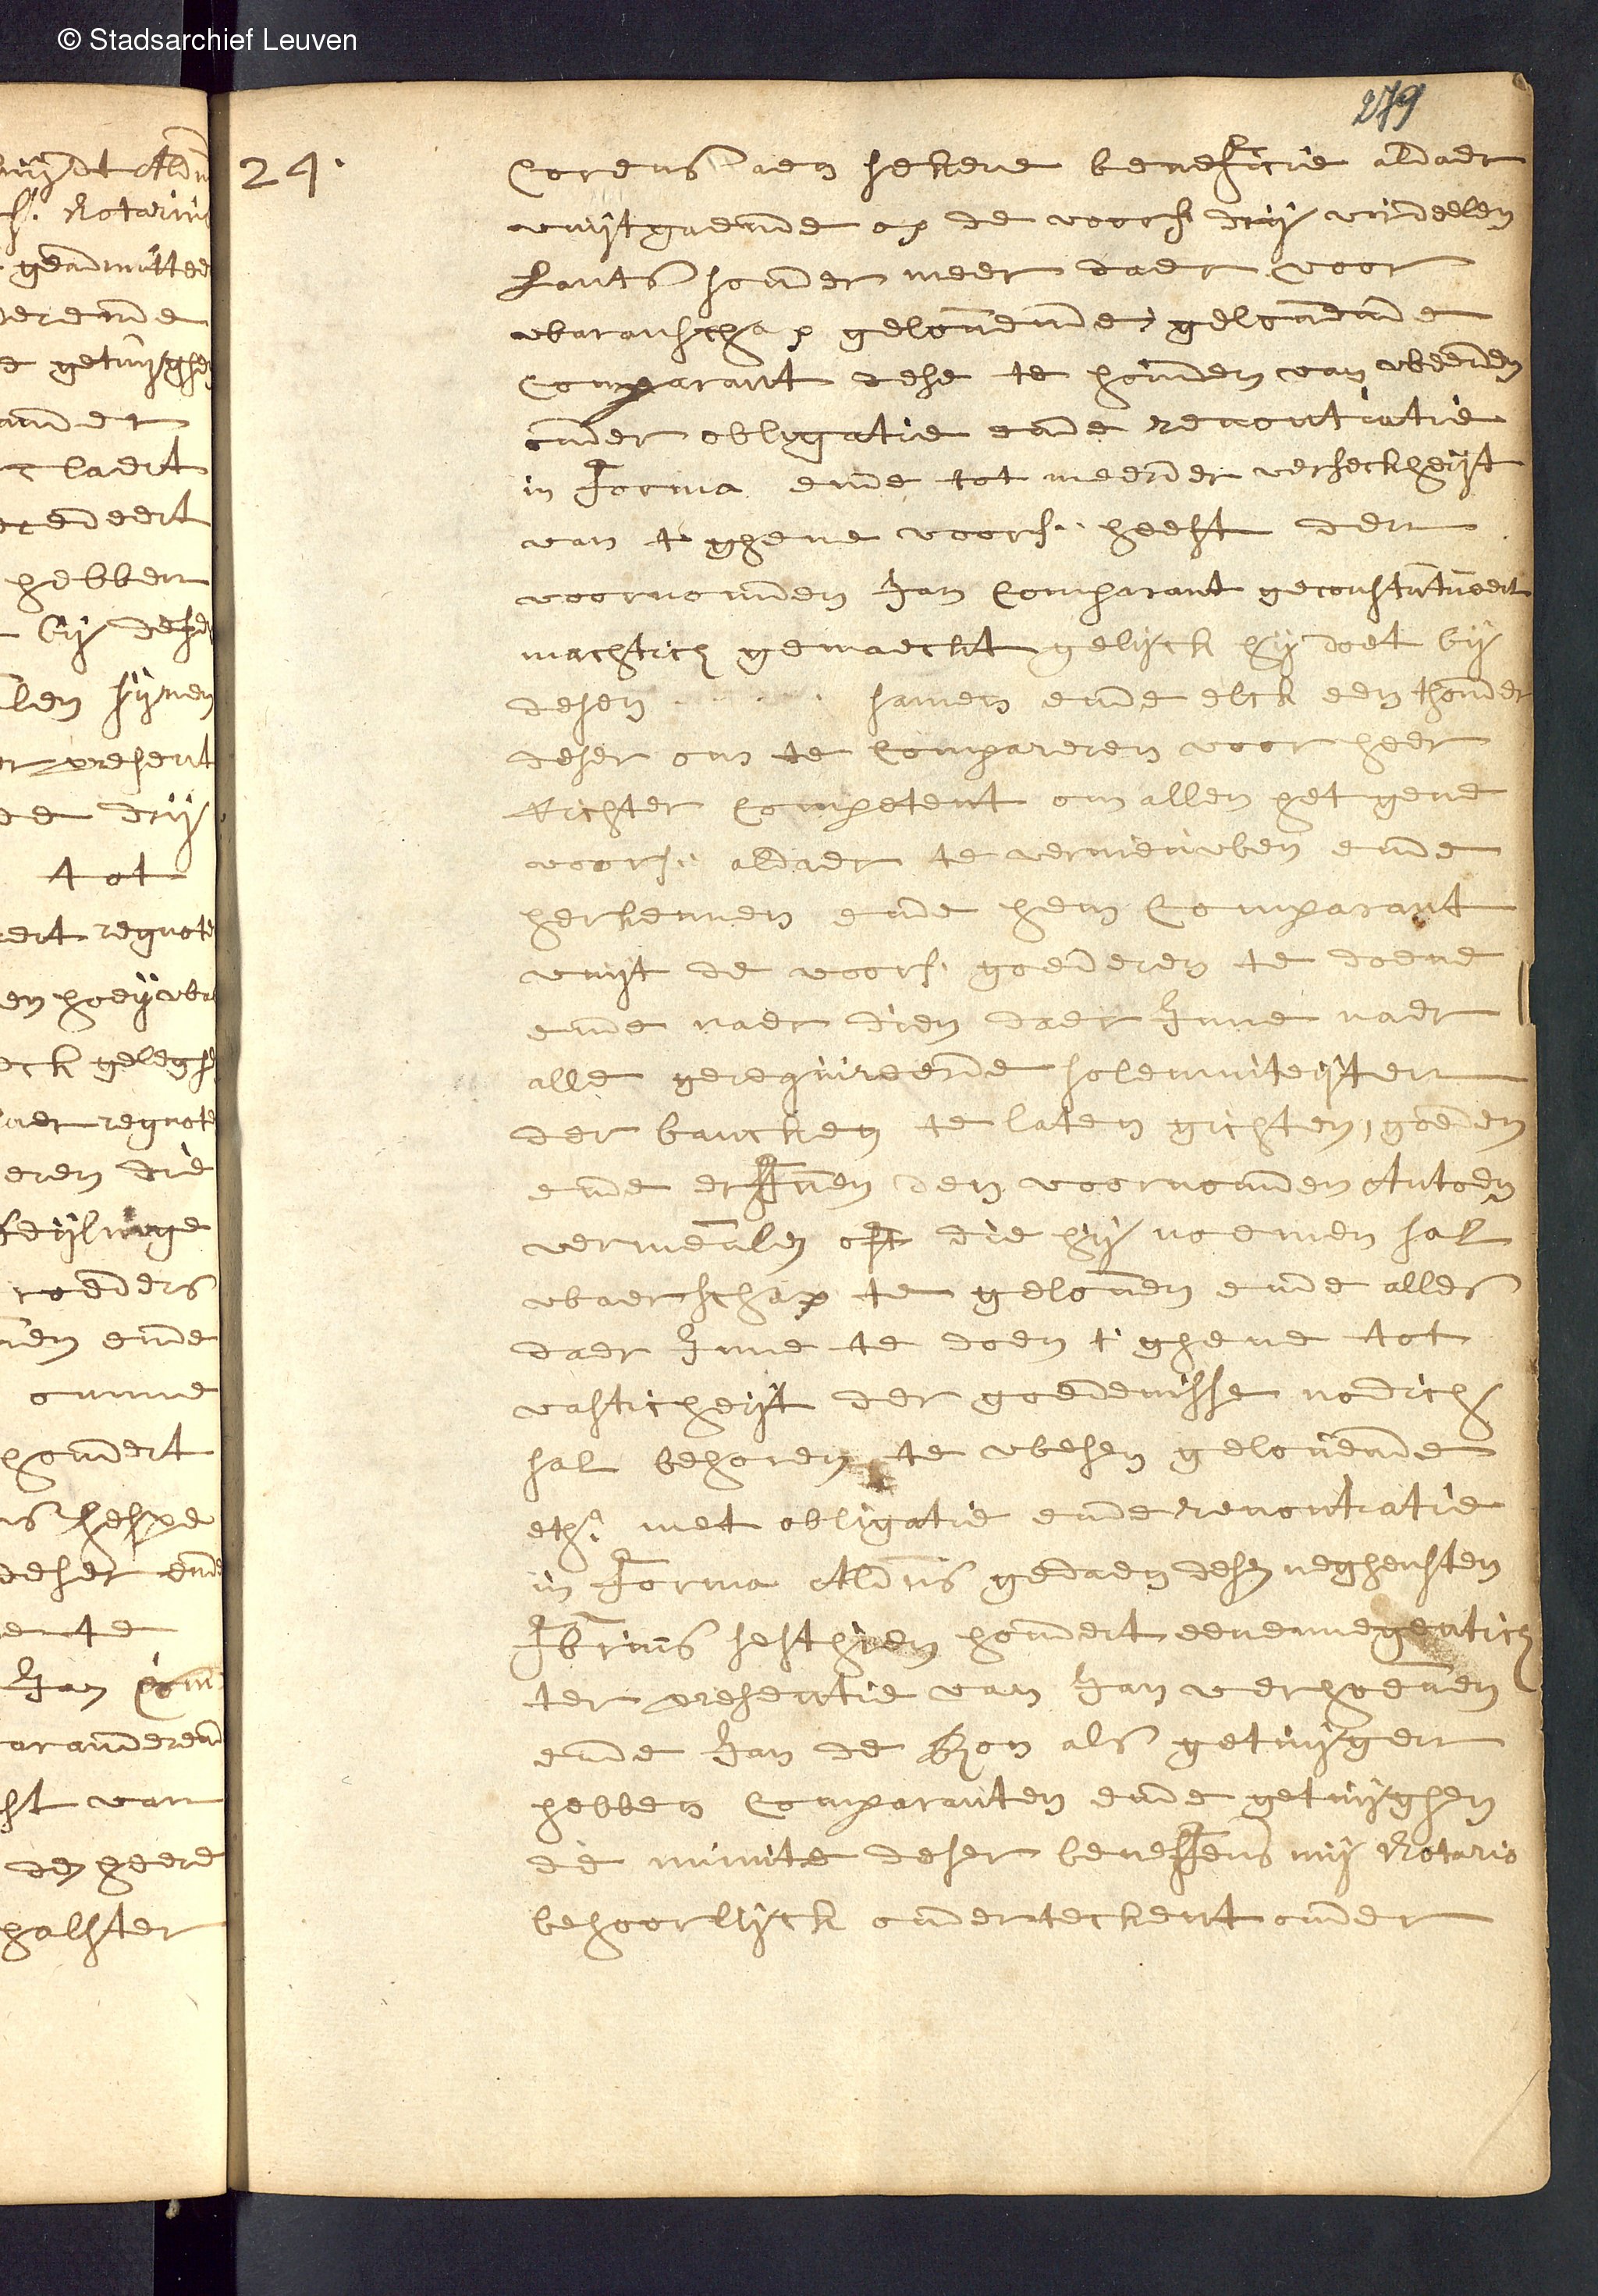 © Stadsarchief Leuven
279
24.
Corens aen sekere beneficie aldaer
uuijtgaende op de voors. drij vierdeelen
Lants sonder meer daer voor
waranschap gelovende, gelovende
Comparant dese te houden van weerden
onder obligatie ende renontiatie
in forma ende tot meerder versekheijt
van t ghene voors. heeft den
voornomden Jan Comparant geconstitueert
machtich gemaeckt gelijck hij doet bij
desen ..... samen ende elck een thonder
deser om te Compareren voor heer
Richter Competent om allen het gene
voors. aldaer te vernieuwen ende
herkennen ende hem Comparant
uuijt de voors. goederen te doene
ende naer dien daer Inne naer
alle gerequireerde solemniteijten
der bancken te laten gichten, goeden
ende erffven den voornomden Antoen
vermeulen oft die hij noemen sal
waerschap te geloven ende alles
daer Inne te doen t' ghene tot
vasticheijt der goedenisse nodich
sal behoren te wesen gelovende
etha. met obligatie ende renontiatie
in forma Aldus gedaen desen neghensten
fbrius sesthien hondert eenennegentich
ter presentie van Jan verhoeven
ende Jan de Kon als getuijgen
hebben Comparanten ende getuijghen
de minute deser beneffens mij Notaris
behoorlijck onderteckent onder